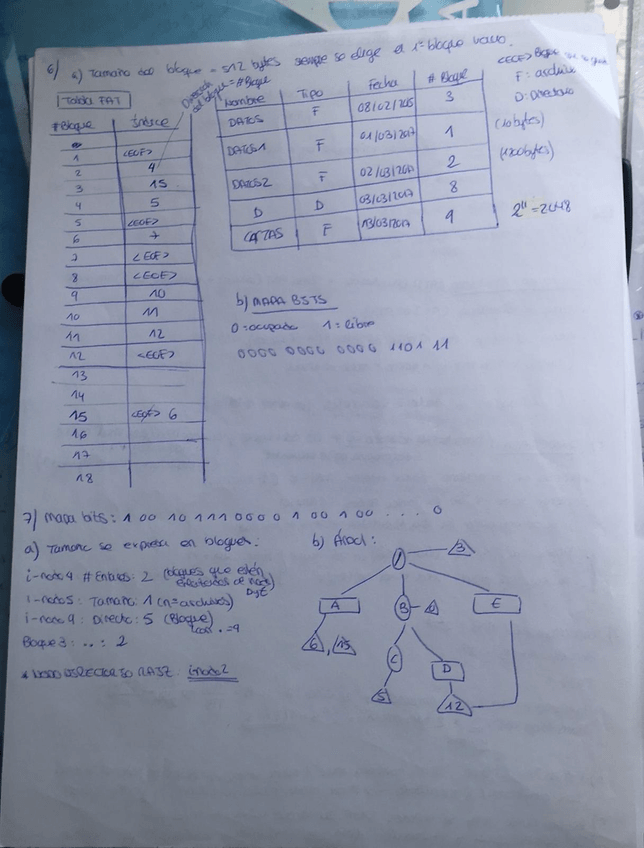 6) a) Tamaño del bloque = 512 bytes siempre se elige el 1º bloque vacío.
<EOF> Bloque
F: archivo
D: Directorio
Tabla FAT
Dirección del bloque = # Bloque
#Bloque Índice
1 <EOF>
2 4
3 15
4 5
5 <EOF>
6 7
7 <EOF>
8 <EOF>
9 10
10 11
11 12
12 <EOF>
13
14
15 <EOF> 6
16
17
18
Nombre Tipo Fecha # Bloque
DATOS F 08/02/2015 3
DATOS1 F 01/03/2017 1 (10 bytes)
DATOS2 F 02/03/2017 2 (1200 bytes)
D D 03/03/2017 8
CARTAS F 13/03/2017 9
2¹¹ = 2048
b) MAPA BITS
0 = ocupado 1 = libre
0000 0000 0000 1101 11
7) Mapa bits: 1 00 10 111 0000 1 00 100 . . . . 0
a) Tamaño se expresa en bloques.
i-nodo 4 # Enlaces: 2 (bloques que están de nodo)
D y E
i-nodo 5: Tamaño: 1 (n= archivos)
i-nodo 9: Directo: 5 (Bloque)
. = 9
Bloque 3: ..: 2
* NODO DIRECTORIO RAIZ: inodo 2
b) Árbol:
/ 3
A B E
6, 13
C D
5 12